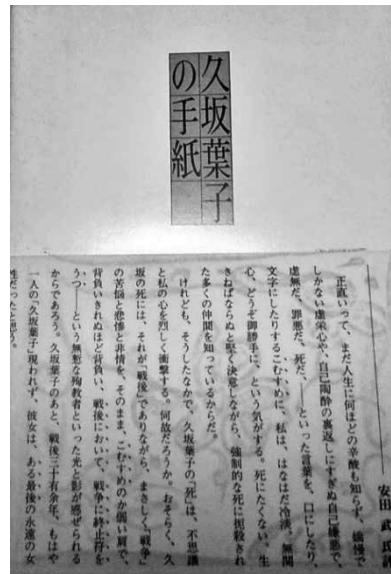 久坂葉子
の手紙
――安田 氏
正直いって、まだ人生に何ほどの辛酸も知らず、驕慢で
しかない虚栄心や、自己陶酔の裏返しにすぎぬ自己嫌悪で、
虚無だ、罪悪だ、死だ、――といった言葉を、口にしたり、
文字にしたりするこむすめに、私は、はなはだ冷淡、無関
心、どうぞ御勝手に、という気がする。死にたくない、生
きねばならぬと堅く決意しながら、強制的な死に拒殺され
た多くの仲間を知っているからだ。
けれども、そうしたなかで、久坂葉子の「死」は、不思議
と私の心を烈しく衝撃する。何故だろうか。おそらく、久
坂の死には、それが「戦後」でありながら、まさしく「戦争」
の苦悩と悲惨と非情を、そのまま、こむすめのか弱い肩で、
背負いきれぬほど背負い、戦後において、戦争に終止符を
うつ――という無慙な殉教者といった光と影が感ぜられる
からであろう。久坂葉子のあと、戦後三十有余年、もはや
一人の「久坂葉子」現われず、彼女は、ある最後の永遠の女
性だったと思う。